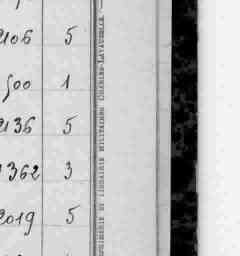 2106 5
500 1
2136 5
1362 3
2019 5
IMPRIMERIE ET LIBRAIRIE MILITAIRES CHARLES-LAVAUZELLE